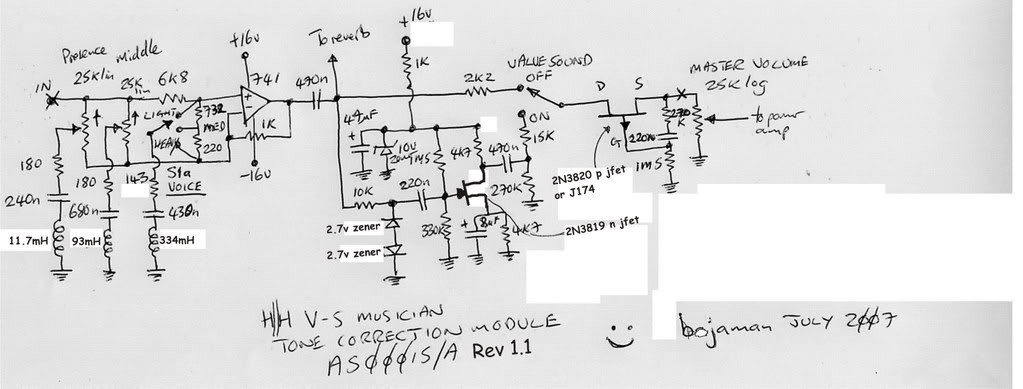 +16v
To reverb
Presence
middle
+16v
25K lin
25K lin
6K8
741
470n
1K
2K2
VALVESOUND
OFF
D
S
MASTER VOLUME
25K log
IN
LIGHT
MED
HEAVY
220
1K
-16v
47µF
10v
4K7
470n
ON
15K
G
220n
1M5
to power
amp
180
240n
11.7mH
180
680n
93mH
S1a
VOICE
430n
334mH
10K
220n
2.7v zener
2.7v zener
330K
270K
8µF
4K7
2N3820 p jfet
or J174
2N3819 n jfet
HH V-S MUSICIAN
TONE CORRECTION MODULE
AS0001S/A Rev 1.1
bojaman JULY 2007